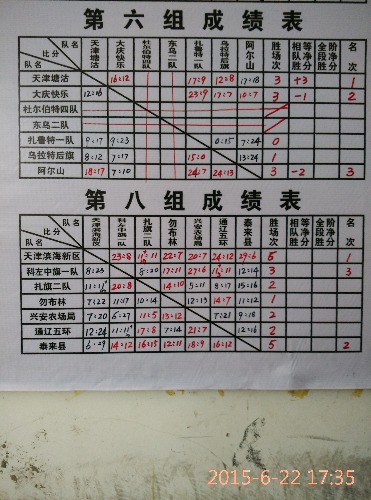 第六组成绩表
队名 比分 队名 天津塘沽 大庆快乐 杜尔伯特四队 东乌二队 扎鲁特一队 乌拉特后旗 阿尔山 胜场次 相队等胜 全净段胜 阶净分 名次
天津塘沽 16:12 17:9 12:8 17:18 3 +3 1
大庆快乐 12:16 23:9 17:7 10:7 3 -1 2
杜尔伯特四队
东乌二队
扎鲁特一队 9:17 9:23 0:15 7:24 0
乌拉特后旗 8:12 7:17 15:0 13:24 1
阿尔山 18:17 7:10 24:7 24:13 3 -2 3
第八组成绩表
队名 比分 队名 天津滨海新区 科左中旗一队 扎旗二队 勿布林 兴安农场局 通辽五环 泰来县 胜场次 名次
天津滨海新区 23:8 11:11 22:7 20:7 24:12 29:6 6 1
科左中旗一队 8:23 8:20 17:11 27:6 11:11 12:14 3 3
扎旗二队 11:11 20:8 14:10 5:11 8:17 15:16 2
勿布林 7:22 11:17 10:14 12:13 14:7 11:12 1
兴安农场局 7:20 6:27 11:5 13:12 7:21 9:18 2
通辽五环 12:24 11:11 17:8 7:14 21:7 12:16 2
泰来县 6:29 14:12 16:15 12:11 18:9 16:12 5 2
2015-6-22 17:35